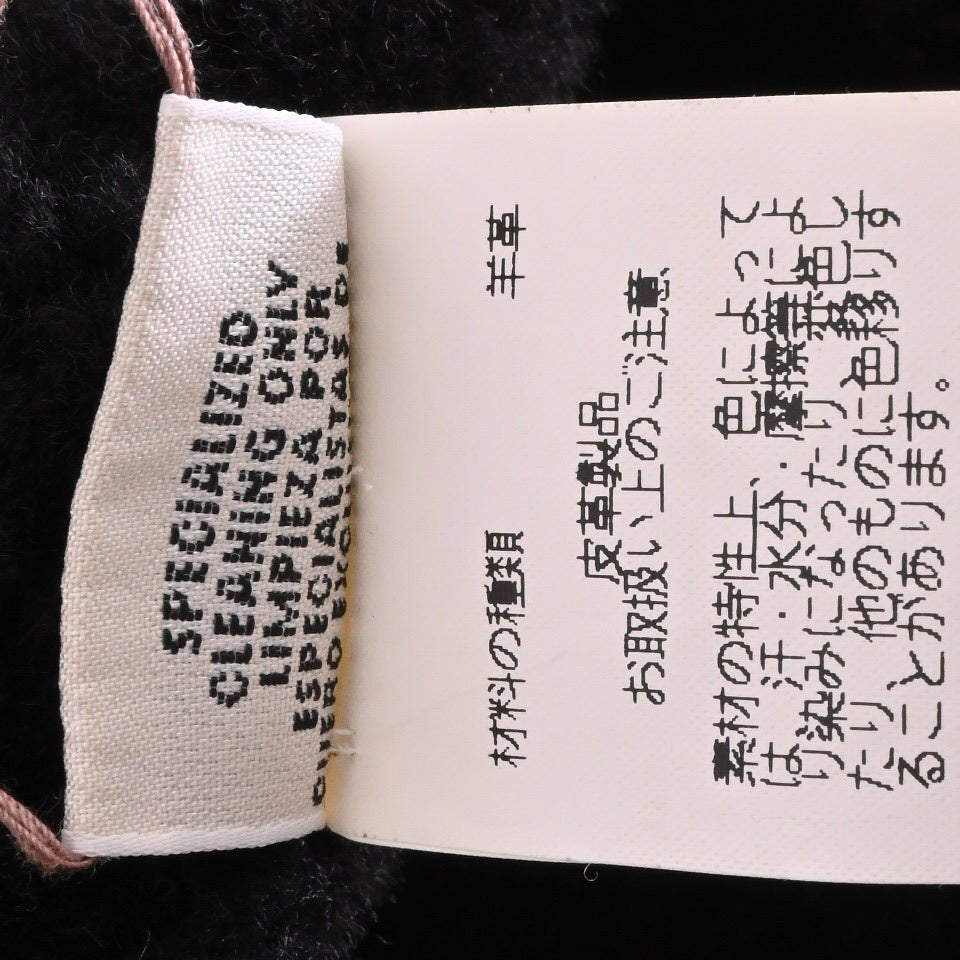 SPECIALIZED
CLEANING ONLY
LIMPIEZA POR
ESPECIALISTAS DE
CUERO EXCLU
材料の種類 羊革
皮革製品
お取扱い上のご注意
素材の特性上、色によって
は汗・水分・摩擦等により色
り染みになったり移し
たり他のものに色移り
ることがあります。